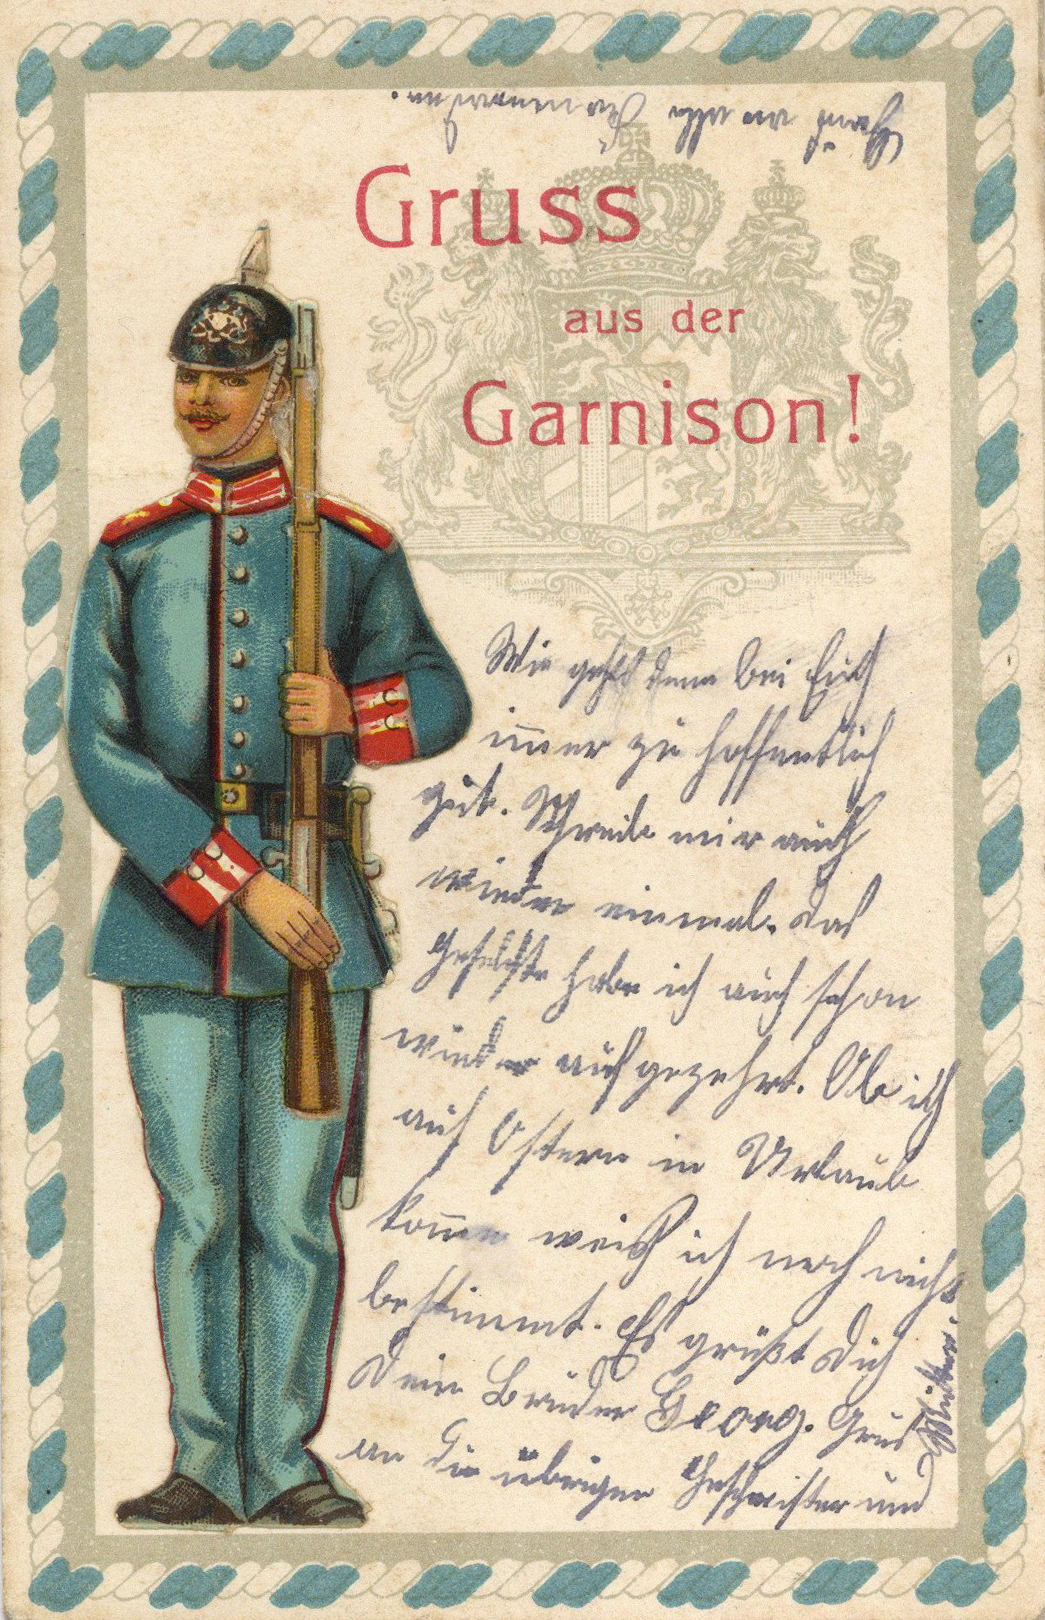 Gruss
aus der
Garnison!
Wie gehts denn bei Euch
immer zu hoffentlich
gut. Schreibe mir auch
wieder einmal. Das
Geselchte habe ich auch schon
wieder aufgezehrt. Ob ich
auf Ostern in Urlaub
komme weiß ich noch nicht
bestimmt. Es grüßt Dich
Dein Bruder Georg. Gruß
an die übrigen Geschwister und
Mutter.
Gruß an alle Kameraden.